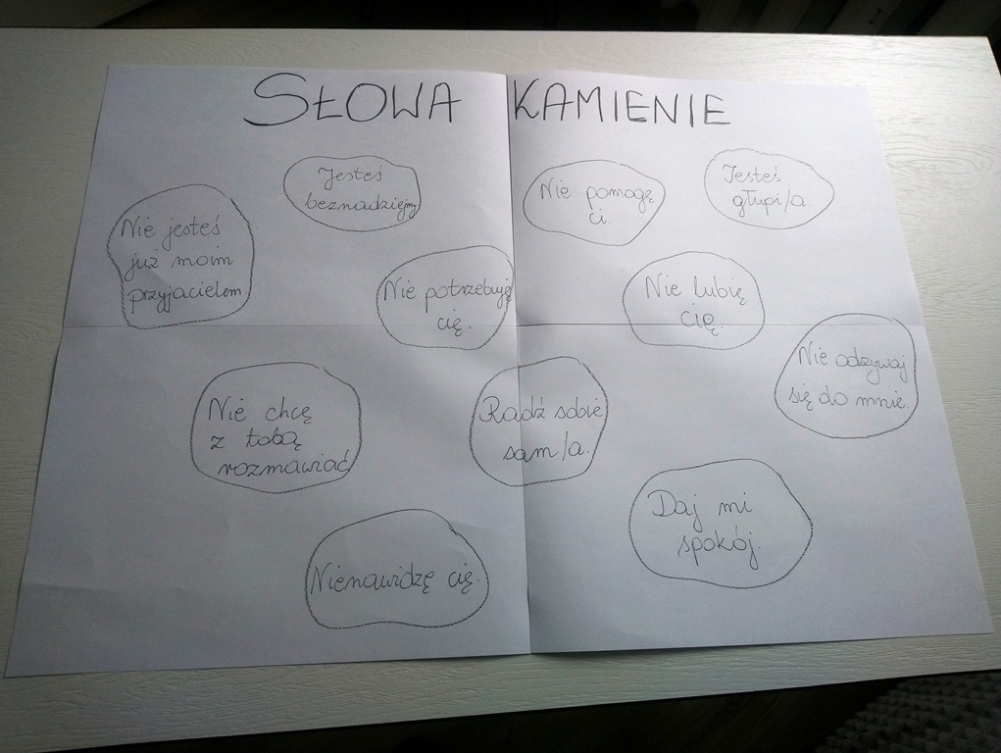 SŁOWA KAMIENIE
Jesteś
beznadziejny
Nie pomogę
ci.
Jesteś
głupi/a.
Nie jesteś
już moim
przyjacielem.
Nie potrzebuję
cię.
Nie lubię
cię.
Nie odzywaj
się do mnie.
Nie chcę
z tobą
rozmawiać
Radź sobie
sam/a.
Daj mi
spokój.
Nienawidzę cię.